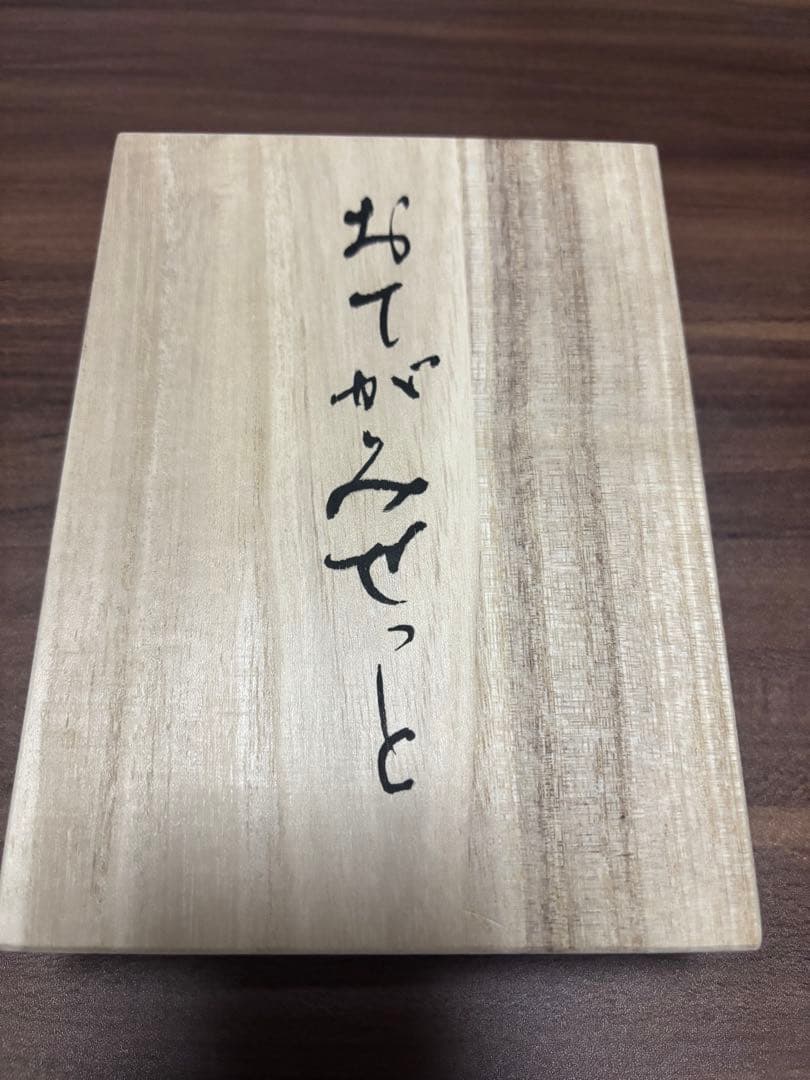 おてがみせっと